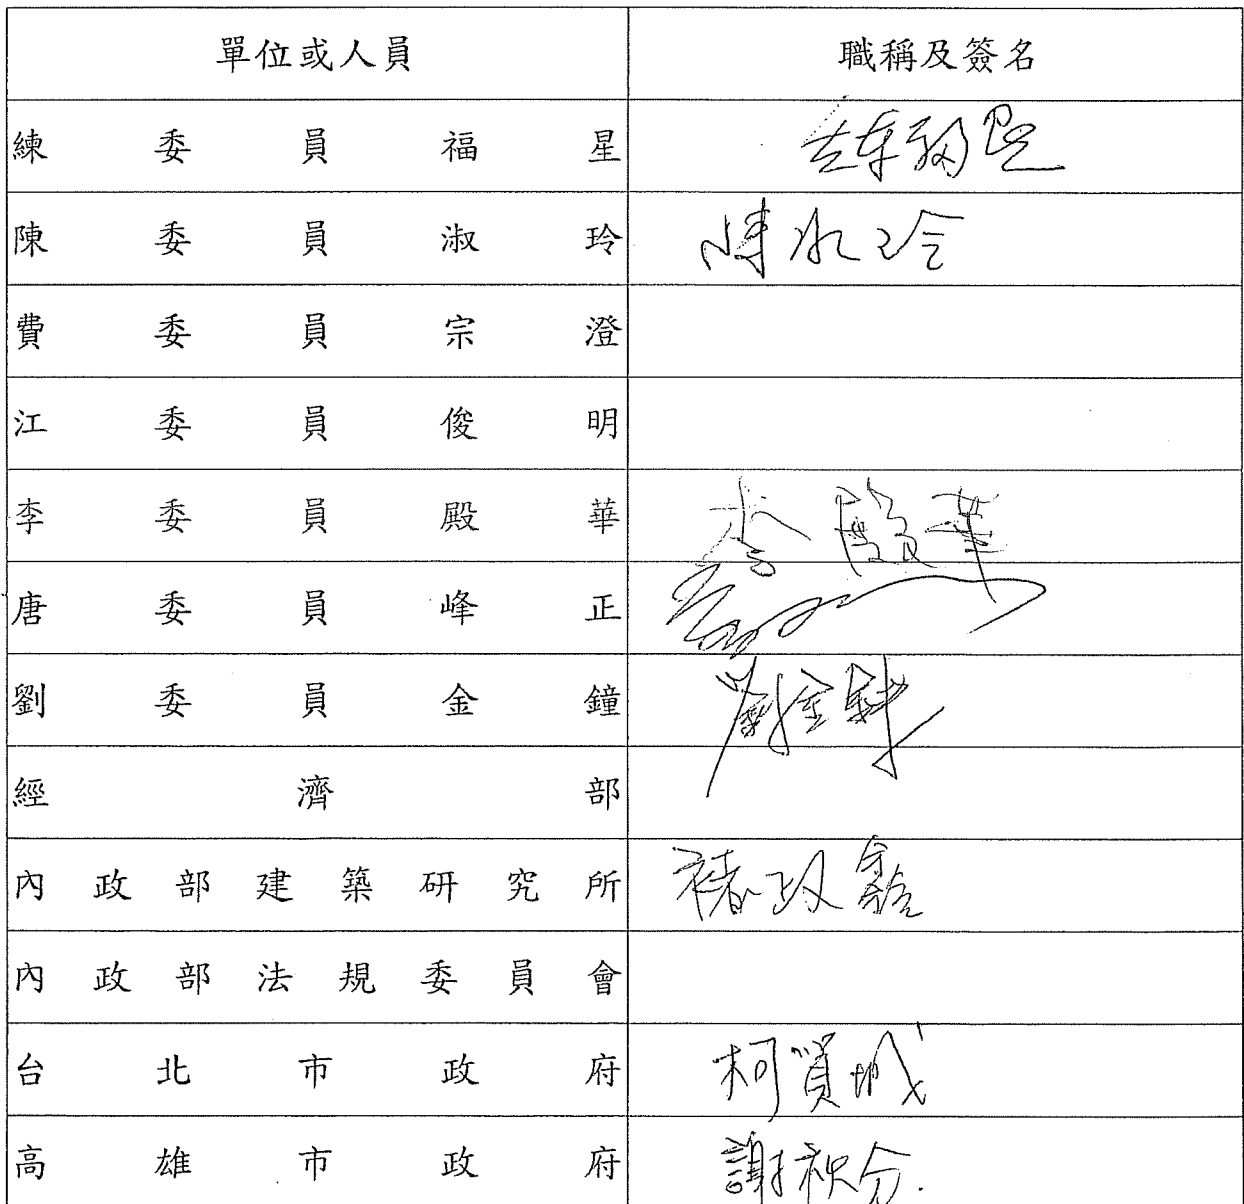 單位或人員 職稱及簽名
練委員福星 練福星
陳委員淑玲 陳淑玲
費委員宗澄
江委員俊明
李委員殿華 李殿華
唐委員峰正
劉委員金鐘 劉金鐘
經濟部
內政部建築研究所 褚政鑫
內政部法規委員會
台北市政府 柯賢城
高雄市政府 謝秋分